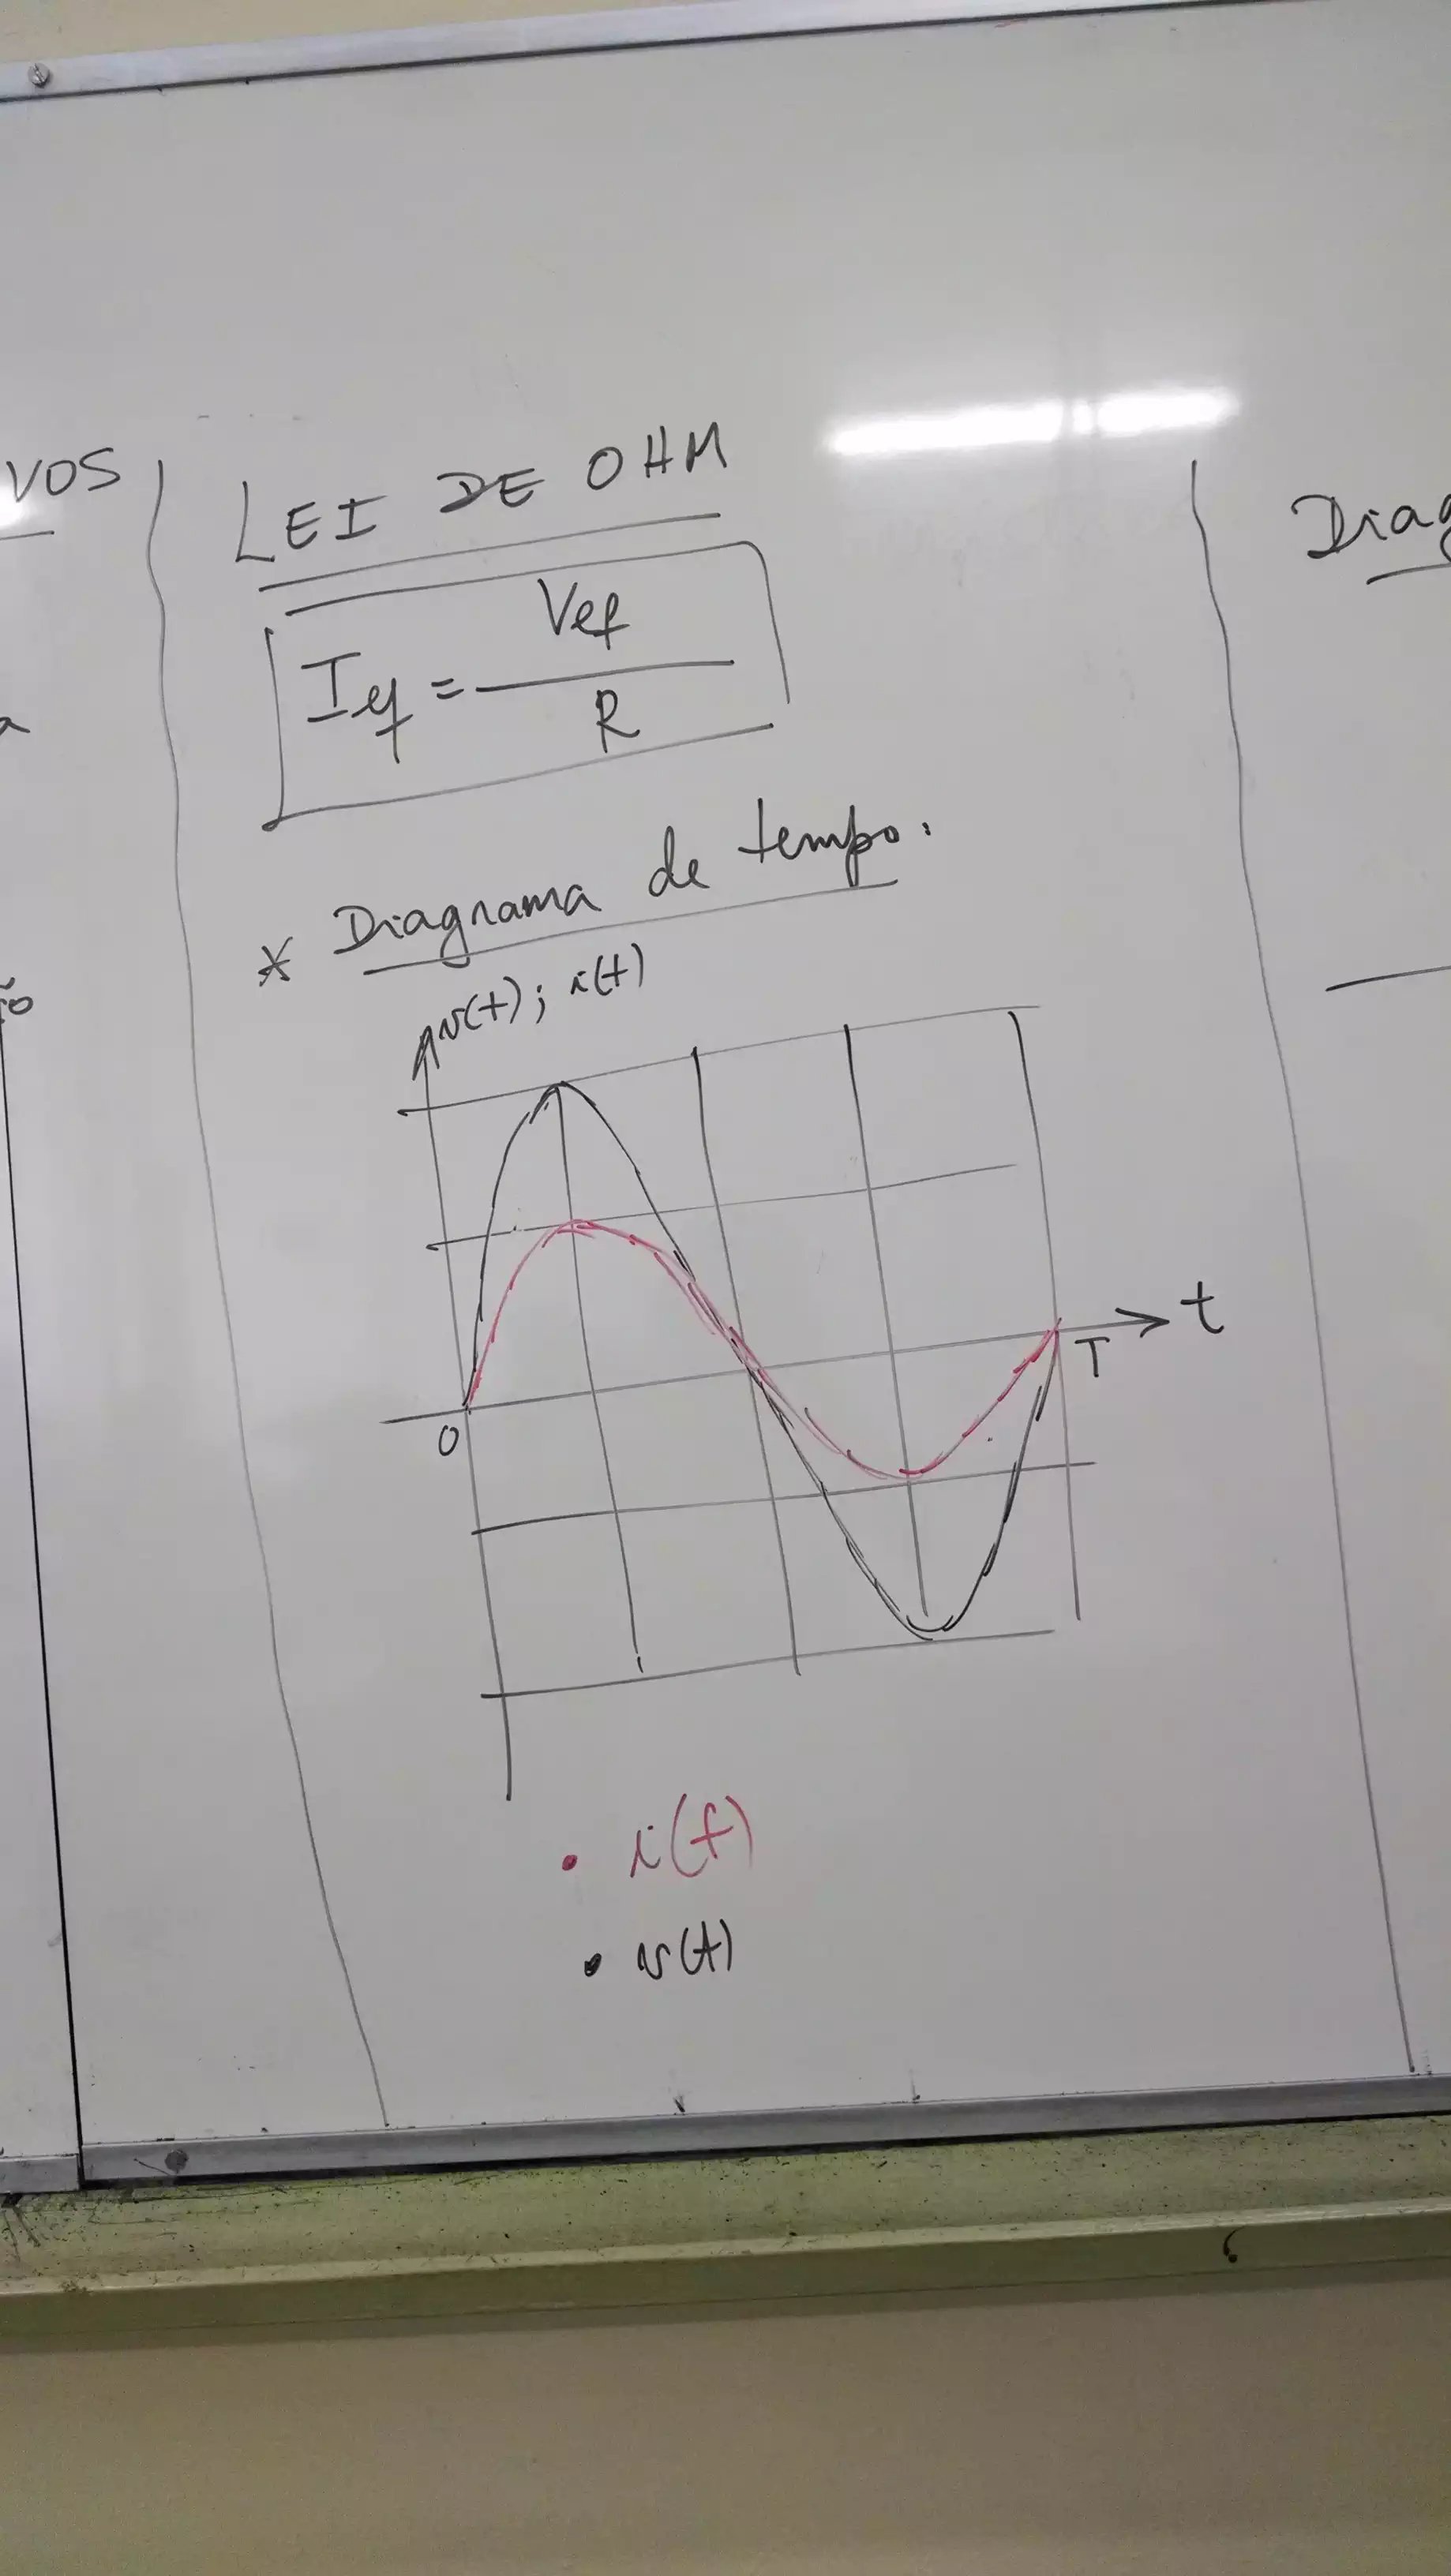 VOS
LEI DE OHM
Ief = Vef
R
a
* Diagrama de tempo.
v(t); i(t)
ão
t
T
0
• i(t)
• v(t)
Diag